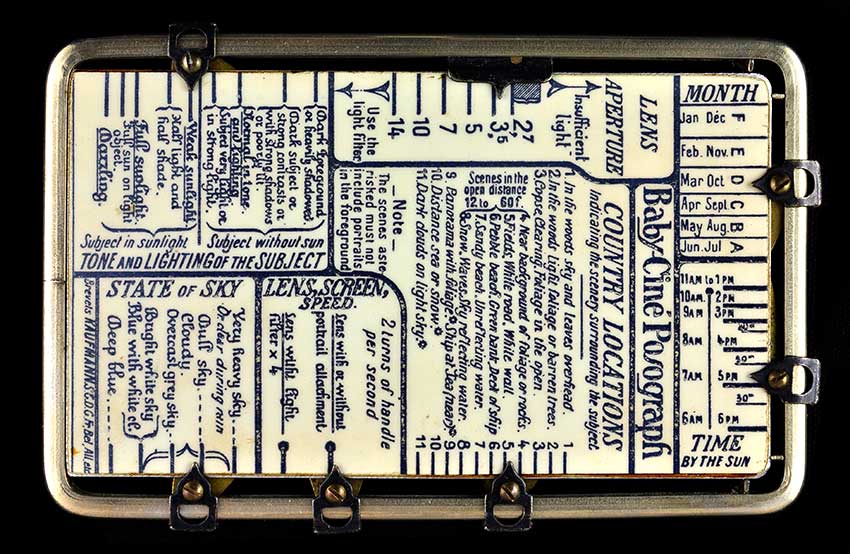 LENS
APERTURE
Insufficient
light
2,7
3,5
5
7
10
14
Use the
light filter
MONTH
Jan Déc F
Feb. Nov. E
Mar Oct D
Apr Sept. C
May Aug. B
Jun. Jul A
11AM to 1PM
10AM 2PM
9AM 3PM
8AM 4PM
7AM 5PM
6AM 6PM
TIME
BY THE SUN
Baby-Ciné Posograph
COUNTRY LOCATIONS
Indicating the scenery surrounding the subject
1. In the woods, sky and leaves overhead. 1
2. In the woods. Light foliage or barren trees. 2
3. Copse, Clearing, Foliage in the open. 3
4. Near background of foliage or roofs. 4
5. Fields. White road. White wall. 5
6. Pebble beach. Green bank. Deck of ship 6
7. Sandy beach. Unreflecting water. 7
8. Snow, Waves, Sky reflecting water. 8
9. Panorama with foliage. Ship at sea (near) 9
10. Distance, sea or snow. 10
11. Dark clouds on light sky. 11
Scenes in the
open distance
12 to 60f.
_ Note _
The scenes aste-
risked must not
include portraits
in the foreground
Dark foreground
or heavily shadowed
Dark subject or
strong contrasts or
with strong shadows
or poorly lit.
Normal in tone
and lighting
Subject very light or
in strong light.
Subject without sun
Weak sunlight
Half light and
half shade.
Full sunlight
Full sun on light
subject
Dazzling.
Subject in sunlight
TONE AND LIGHTING OF THE SUBJECT
LENS, SCREEN,
SPEED.
2 turns of handle
per second
Lens with or without
portrait attachment
Lens with light
filter x 4
STATE OF SKY
Very heavy sky
Or clear during sun
Dull sky
Cloudy.
Overcast grey sky
Bright white sky
Blue with white cl.
Deep blue
Brevets KAUFMANN S.G.D.G. Fr, Bel, All. etc.